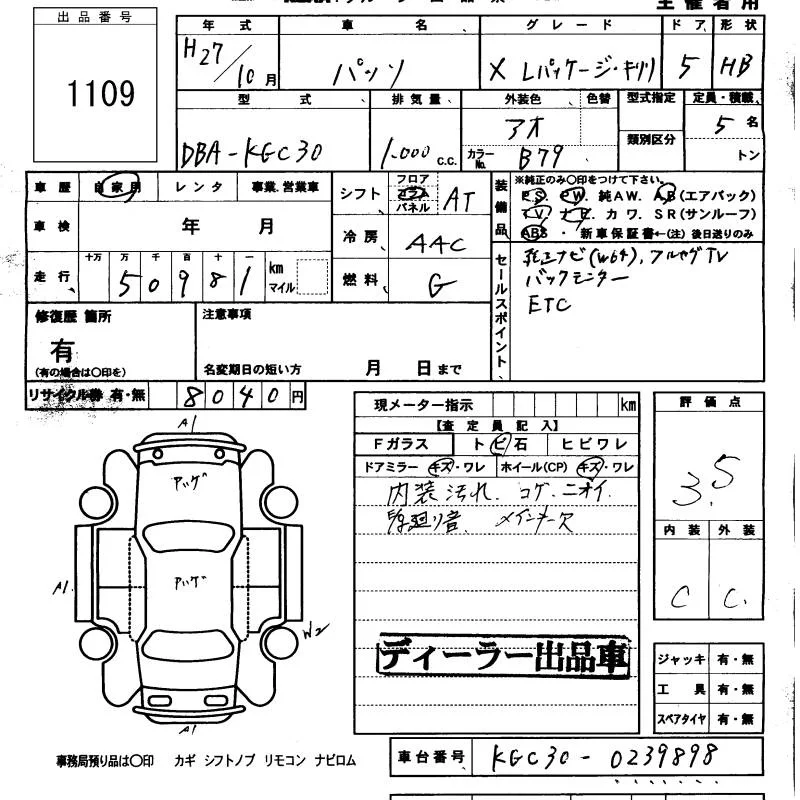 主催者用
出品番号
1109
年式 車名 グレード ドア 形状
H27/10月 パッソ X Lパッケージ・キリリ 5 HB
型式 排気量 外装色 色替 型式指定 定員・積載
DBA-KGC30 1.000 c.c. アオ 5名
カラーNo. B79 類別区分 トン
車歴 自家用 レンタ 事業.営業車
シフト フロア コラム パネル AT
装備品 ※純正のみ〇印をつけて下さい。
P.S. P.W. 純AW. A.B(エアバック)
T V. ナビ. カワ. SR(サンルーフ)
ABS ・ 新車保証書←(注) 後日送りのみ
車検 年 月
冷房 AAC
走行 十万 万 千 百 十 一 km マイル
50981
燃料 G
セールスポイント
純正ナビ(W64), フルセグTV
バックモニター
ETC
修復歴 箇所
有
(有の場合は〇印を)
注意事項
名変期日の短い方 月 日まで
リサイクル券 有・無 8040円
現メーター指示 km
【査定員記入】
Fガラス トビ石 ヒビワレ
ドアミラー キズ・ワレ ホイール(CP) キズ・ワレ
内装汚れ. コゲ. ニオイ.
メインキー欠
評価点
3.5
内装 外装
C C.
A1
アハゲ
アハゲ
A1.
W2
A1
ディーラー出品車
ジャッキ 有・無
工具 有・無
スペアタイヤ 有・無
事務局預り品は〇印 カギ シフトノブ リモコン ナビロム
車台番号 KGC30-0239898